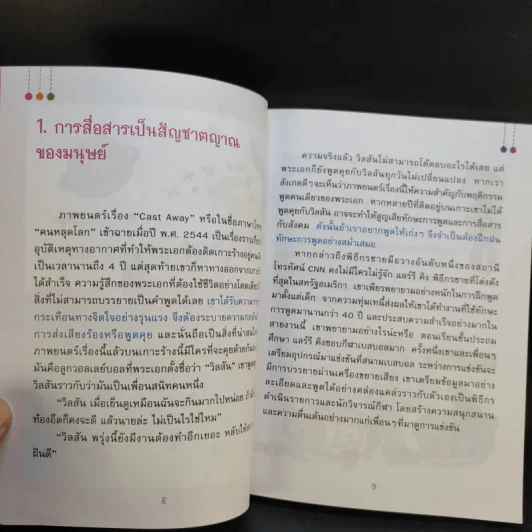 1. การสื่อสารเป็นสัญชาตญาณ
ของมนุษย์
ภาพยนตร์เรื่อง "Cast Away" หรือในชื่อภาษาไทย
"คนหลุดโลก" เข้าฉายเมื่อปี พ.ศ. 2544 เป็นเรื่องราว
อุบัติเหตุทางอากาศที่ทำให้พระเอกต้องติดเกาะร้างอยู่
เป็นเวลานานถึง 4 ปี แต่สุดท้ายเขาก็หาทางออกจาก
ได้สำเร็จ ความรู้สึกของพระเอกที่ต้องใช้ชีวิตอย่างโดดเดี่ยว
สิ่งที่ไม่สามารถบรรยายเป็นคำพูดได้เลย เขาได้รับความ
กระเทือนทางจิตใจอย่างรุนแรง จึงต้องระบายความ
การส่งเสียงร้องหรือพูดคุย และนั่นถือเป็นสิ่งที่น่า
ภาพยนตร์เรื่องนี้แล้วบนเกาะร้างนี้มีใครที่จะคุยด้วย
มันคือลูกวอลเลย์บอลที่พระเอกตั้งชื่อว่า "วิลสัน" เขาพูด
วิลสันราวกับว่ามันเป็นเพื่อนสนิทคนหนึ่ง
"วิลสัน เมื่อเย็นดูเหมือนฉันจะกินมากไปหน่อย
ท้องอืดก็คงจะดี แล้วนายล่ะ ไม่เป็นไรใช่ไหม"
"วิลสัน พรุ่งนี้ยังมีงานต้องทำอีกเยอะ หลับให้
ฝันดี"
8
ความจริงแล้ว วิลสันไม่สามารถโต้ตอบอะไรได้เลย แต่
พระเอกก็ยังพูดคุยกับวิลสันทุกวันไม่เปลี่ยนแปลง หากเรา
สังเกตดีๆ จะเห็นว่าภาพยนตร์เรื่องนี้ให้ความสำคัญกับพฤติกรรม
พูดคนเดียวของพระเอก หากหลายปีที่ติดอยู่บนเกาะเขาไม่ได้
พูดคุยกับวิลสัน อาจจะทำให้สูญเสียทักษะการพูดและการสื่อสาร
กับสังคม ดังนั้นถ้าเราอยากพูดให้เก่งๆ จึงจำเป็นต้องฝึกฝน
ทักษะการพูดอย่างสม่ำเสมอ
หากกล่าวถึงพิธีกรชายมือวางอันดับหนึ่งของสถานี
โทรทัศน์ CNN คงไม่มีใครไม่รู้จัก แลร์รี คิง พิธีกรชายที่โด่งดัง
ที่สุดในสหรัฐอเมริกา เขาเพียรพยายามอย่างหนักในการฝึกพูด
มาตั้งแต่เด็ก จากความทุ่มเทนี้ส่งผลให้เขาได้ทำงานที่ใช้ทักษะ
การพูดมานานกว่า 40 ปี และประสบความสำเร็จอย่างมากใน
สายงานนี้ เขาพยายามอย่างไรน่ะหรือ ตอนเรียนชั้นประถม
ศึกษา แลร์รี คิงชอบกีฬาเบสบอลมาก ครั้งหนึ่งเขาและเพื่อนๆ
เตรียมอุปกรณ์มาแข่งขันที่สนามเบสบอล ระหว่างการแข่งขันจะ
มีการบรรยายผ่านเครื่องขยายเสียง เขาเตรียมข้อมูลมาอย่าง
ละเอียดและพูดได้อย่างคล่องแคล่วราวกับตัวเองเป็นพิธีกร
ดำเนินรายการและนักวิจารณ์กีฬา โดยสร้างความสนุกสนาน
และความตื่นเต้นอย่างมากแก่เพื่อนๆ ที่มาดูการแข่งขัน
9